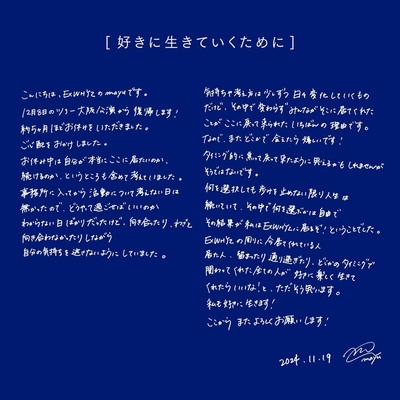 [ 好きに生きていくために ]
こんにちは、ExWHYZのmayuです。
12月8日のツアー大阪公演から復帰します!
約5ヶ月ほどお休みをいただきました。
ご心配をおかけしました。
お休み中は自分が本当にここに居たいのか、
続けるのか、というところも含めて考えていました。
事務所に入ってから活動について考えない日は
無かったので、どうやって過ごせばいいのか
わからない日ばかりだったけど、向き合ったり、わざと
向き合わなかったりしながら
自分の気持ちを逃がないようにしていました。
気持ちや考え方は少しずつ日々変化していくもの
だけど、その中で変わらずみんながそこに居てくれた
ことがここに戻って来られたいちばんの理由です。
なので、またどこかで会えたら嬉しいです!
タイミング的に焦って戻って来たように見えるかもしれませんが
そうではないです。
何を選択しても歩みを止めない限り人生は
続いていて、その中で何を選ぶかは自由で
その結果が私はExWHYZに居るぞ!ということでした。
ExWHYZの周りに今居てくれている人
居た人、留まったり通り過ぎたり、どこかのタイミングで
関わってくれた全ての人が好きに楽しく生きて
くれたらいいな!と、ただそう思います。
私も好きに生きます!
ここからまたよろしくお願いします!
2024.11.19 mayu